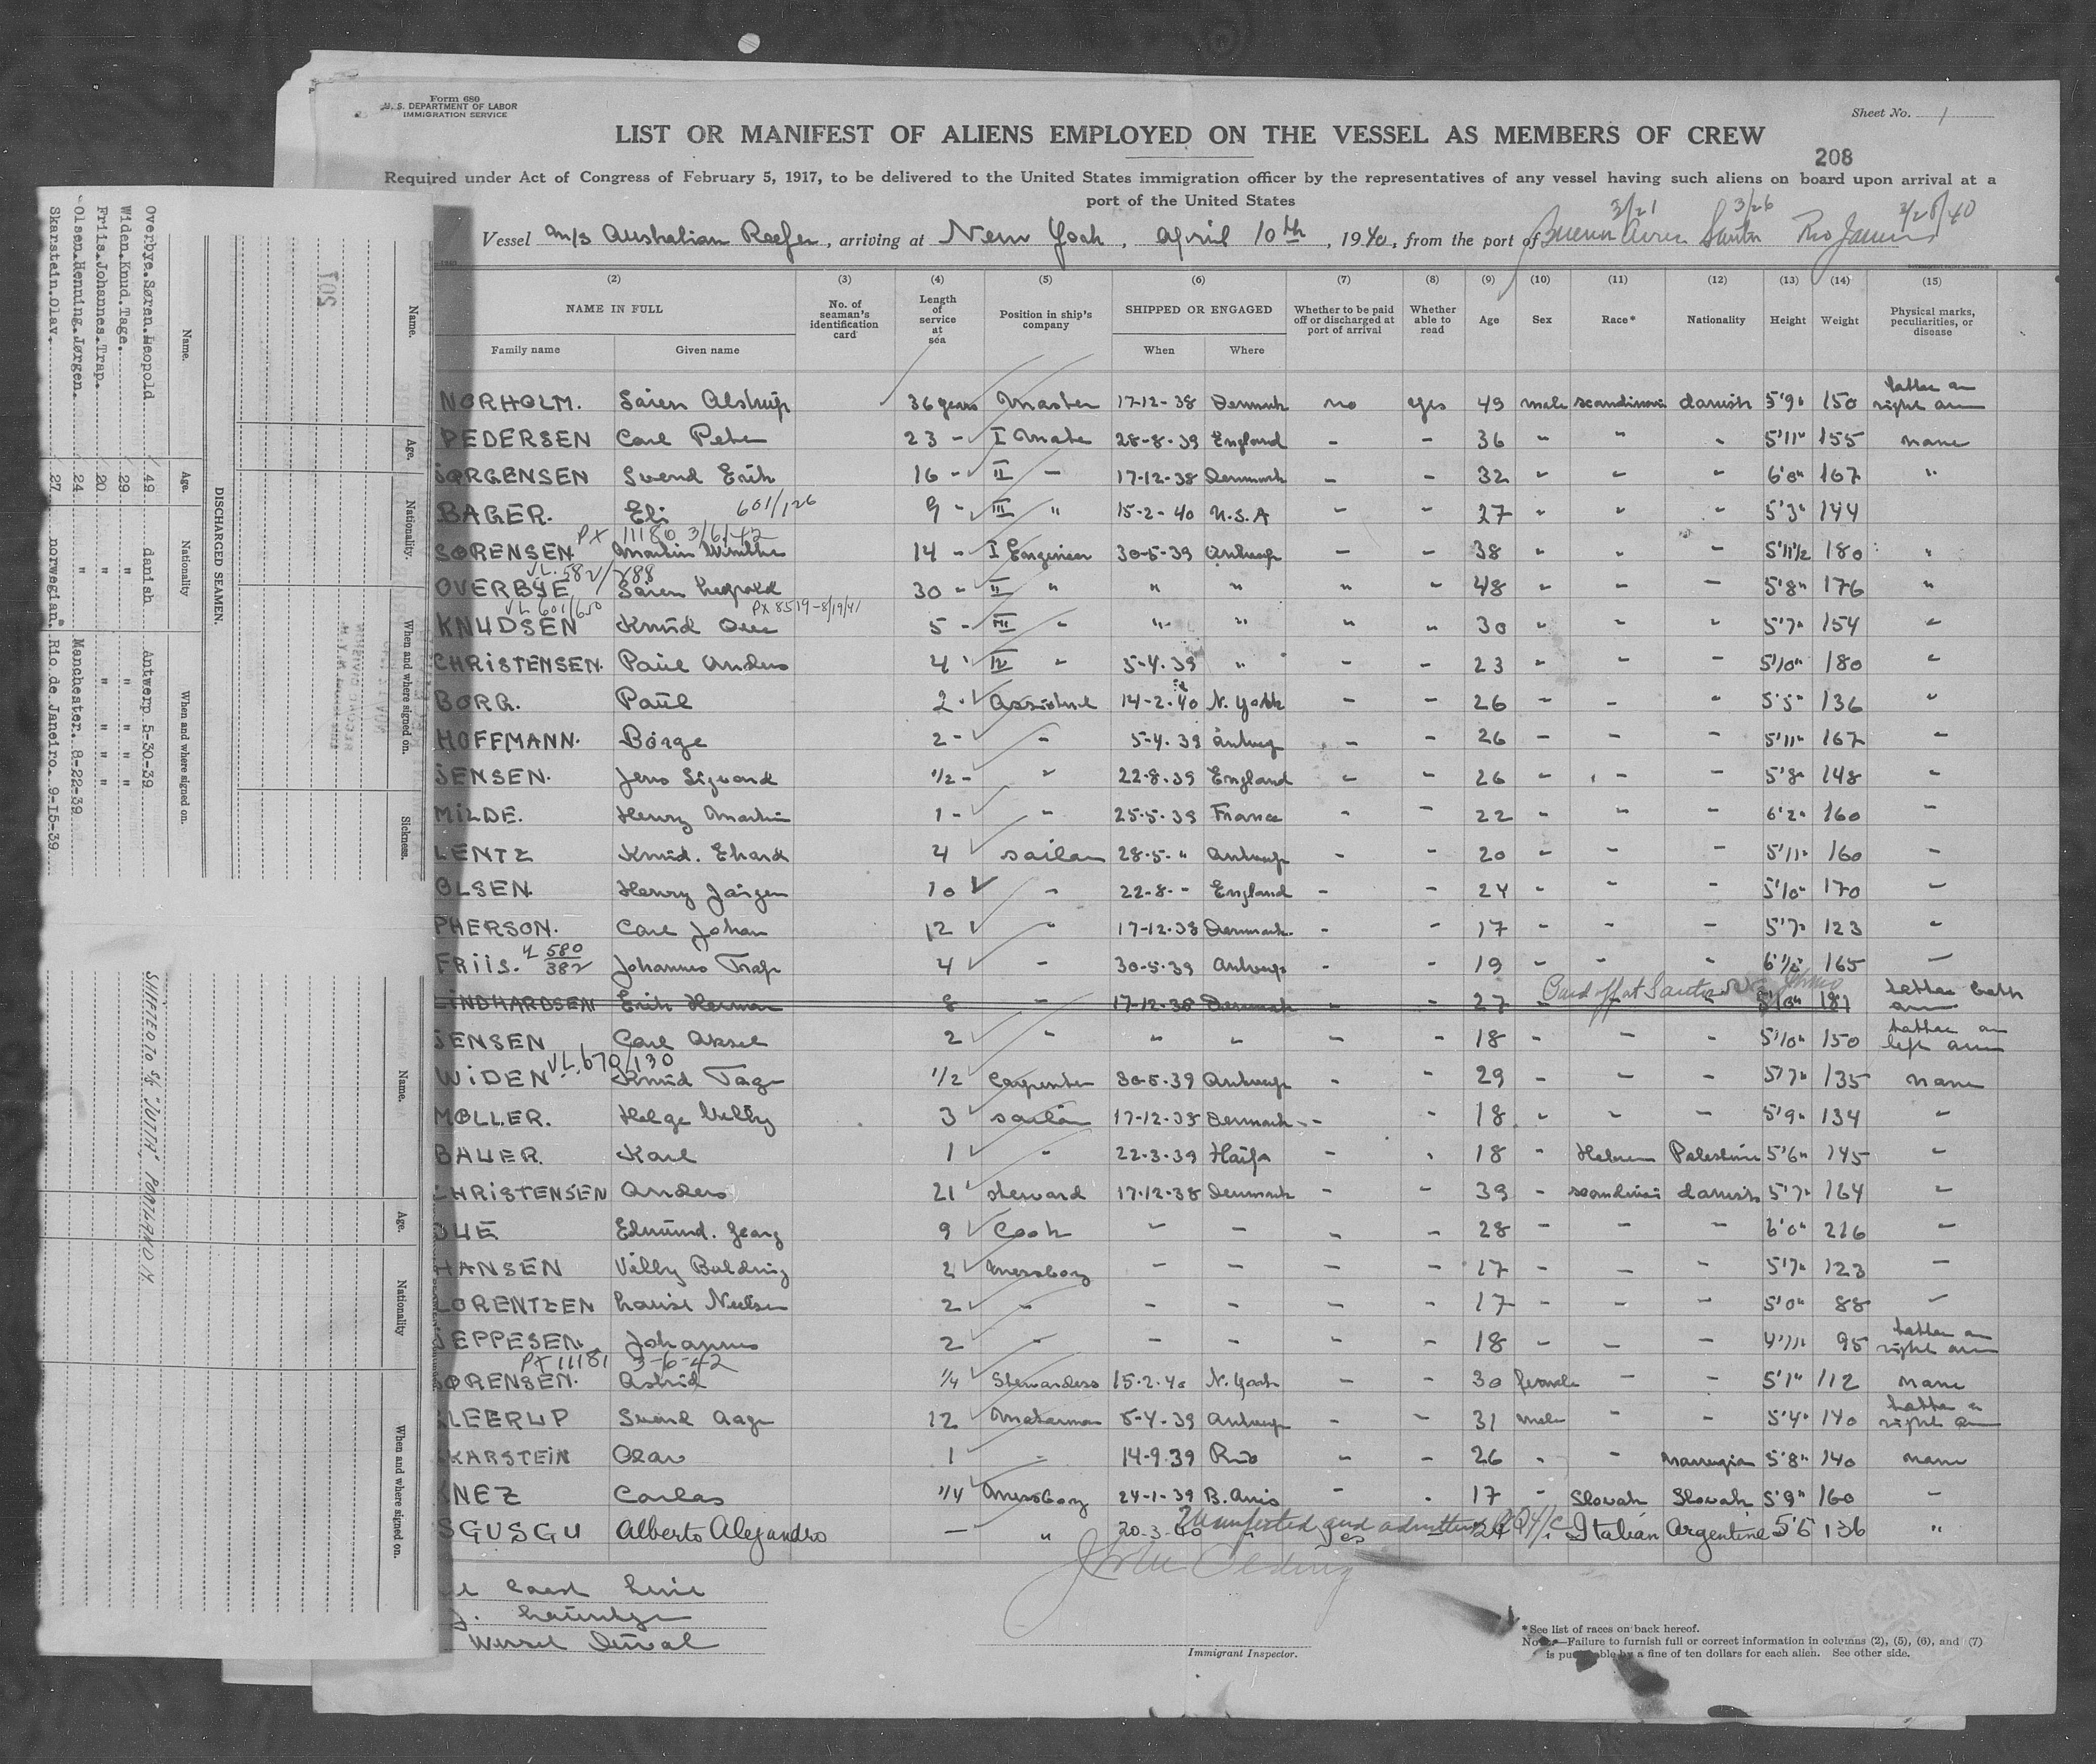 Form 680
U. S. DEPARTMENT OF LABOR
IMMIGRATION SERVICE
Sheet No. 1
LIST OR MANIFEST OF ALIENS EMPLOYED ON THE VESSEL AS MEMBERS OF CREW
208
Required under Act of Congress of February 5, 1917, to be delivered to the United States immigration officer by the representatives of any vessel having such aliens on board upon arrival at a
port of the United States
3/21 3/26 3/28/40
Vessel m/s Australian Reefer, arriving at New York, April 10th, 1940, from the port of Buenos Aires Santos Rio Janeiro
(2) (3) (4) (5) (6) (7) (8) (9) (10) (11) (12) (13) (14) (15)
NAME IN FULL No. of seaman's identification card Length of service at sea Position in ship's company SHIPPED OR ENGAGED Whether to be paid off or discharged at port of arrival Whether able to read Age Sex Race* Nationality Height Weight Physical marks, peculiarities, or disease
Family name Given name When Where
NORHOLM. Sören Alstrup 36 years Master 17-12-38 Denmark no yes 49 male scandinavi danish 5'9" 150 tattoo on right arm
PEDERSEN Carl Peter 23 - I Mate 28-8-39 England - - 36 " " " 5'11" 155 none
JØRGENSEN Svend Erik 16 - II - 17-12-38 Denmark - - 32 - - - 6'0" 167 "
BAGER. Eli 601/126 9 - III " 15-2-40 U.S.A - - 27 " " " 5'3" 144
PX 11180 3/6/42
SØRENSEN. Martin 14 - I Engineer 30-5-39 Antwerp - - 38 " " - 5'11½ 180 "
VL. 582/288
OVERBYE Sören Leopold 30 - II " " " " " 48 - - - 5'8" 176 "
VL 601/650 PX 8519-8/19/41
KNUDSEN Knud Ove 5 - III - " " " " 30 - - " 5'7" 154 -
CHRISTENSEN. Paul Anders 4 " IV " 5-4.39 " - - 23 - - - 5'10" 180 -
BORG. Paul 2 - Assistent 14-2-40 N. York - - 26 - - " 5'5" 136 "
HOFFMANN. Börge 2 - - 5-4.39 Antwerp - - 26 - - - 5'11" 167 -
JENSEN. Jens Sigvard ½ - " 22-8-39 England - - 26 - - - 5'8" 148 -
MILDE. Henry Martin 1 - " 25-5-39 France - - 22 - - - 6'2" 160 -
LENTZ Knud. Ehard 4 sailor 28-5-" Antwerp - - 20 - - - 5'11" 160 -
OLSEN. Henry Jörgen 10 - 22-8-" England - - 24 - - - 5'10" 170 -
PHERSON. Carl Johan 12 " 17-12-38 Denmark - - 17 - - - 5'7" 123 -
580/382
FRIIS. Johannes Trap 4 - 30-5-39 Antwerp - - 19 - - - 6'½" 165 -
LINDHARDSEN Erik Herman 8 - 17-12-38 Denmark - - 27 Paid off at Santos 5'10" 181 tattoo both arm
JENSEN Carl Aksel 2 " " " - - 18 - - - 5'10" 150 tattoo on left arm
VL. 670/130
WIDEN Knud Tage ½ Carpenter 30-5-39 Antwerp - - 29 - - - 5'7" 135 none
MØLLER. Helge Villy 3 sailor 17-12-38 Denmark - - 18 - - - 5'9" 134 -
BAUER. Karl 1 " 22-3-39 Haifa - - 18 - Hebrew Palestine 5'6" 145 -
CHRISTENSEN Anders 21 steward 17-12-38 Denmark - - 39 - scandinavi danish 5'7" 164 -
DUE Edmund. Georg 9 Cook - - - - 28 - - - 6'0" 216 -
HANSEN Villy Balding 2 messboy - - - - 17 - - - 5'7" 123 -
LORENTZEN Nielsen 2 - - - - - 17 - - - 5'0" 88 -
JEPPESEN. Johannes 2 - - - - - 18 - - - 4'11" 95 tattoo on right arm
PX 11181 3-6-42
SØRENSEN. Astrid ¼ Stewardess 15-2-40 N. York - - 30 female - - 5'1" 112 none
LEERUP Svend Aage 12 Motorman 5-4-39 Antwerp - - 31 male - - 5'4" 140 tattoo on right arm
KARSTEIN Olav 1 - 14-9-39 Rio - - 26 - - Norwegian 5'8" 140 none
KNEZ Carlos ¼ Messboy 24-1-39 B. Aires - - 17 - Slovak Slovak 5'9" 160 -
SGUSGU Alberto Alejandro - " 20-3-40 " yes 24 Italian Argentine 5'6 136 "
Manifested and admitted
Coast Line
J. Lauritzen
Wessel Duval
Immigrant Inspector.
*See list of races on back hereof.
NOTE.—Failure to furnish full or correct information in columns (2), (5), (6), and (7)
is punishable by a fine of ten dollars for each alien. See other side.
DISCHARGED SEAMEN.
Name. Age. Nationality When and where signed on.
Overbye.Søren.Leopold 49 danish Antwerp 5-30-39
Widen.Knud.Tage. 29. " " "
Friis.Johannes.Trap. 20. " " "
Olsen.Henning.Jørgen. 24. " Manchester. 8-22-39
Skarstein.Olav. 27. norwegian. Rio.de.Janeiro. 9-15-39
Name. Age. Nationality When and where signed on. Sickness.
207
Name. Age. Nationality When and where signed on.
SHIFTED TO S/S "JUTTA" PORTLAND M.